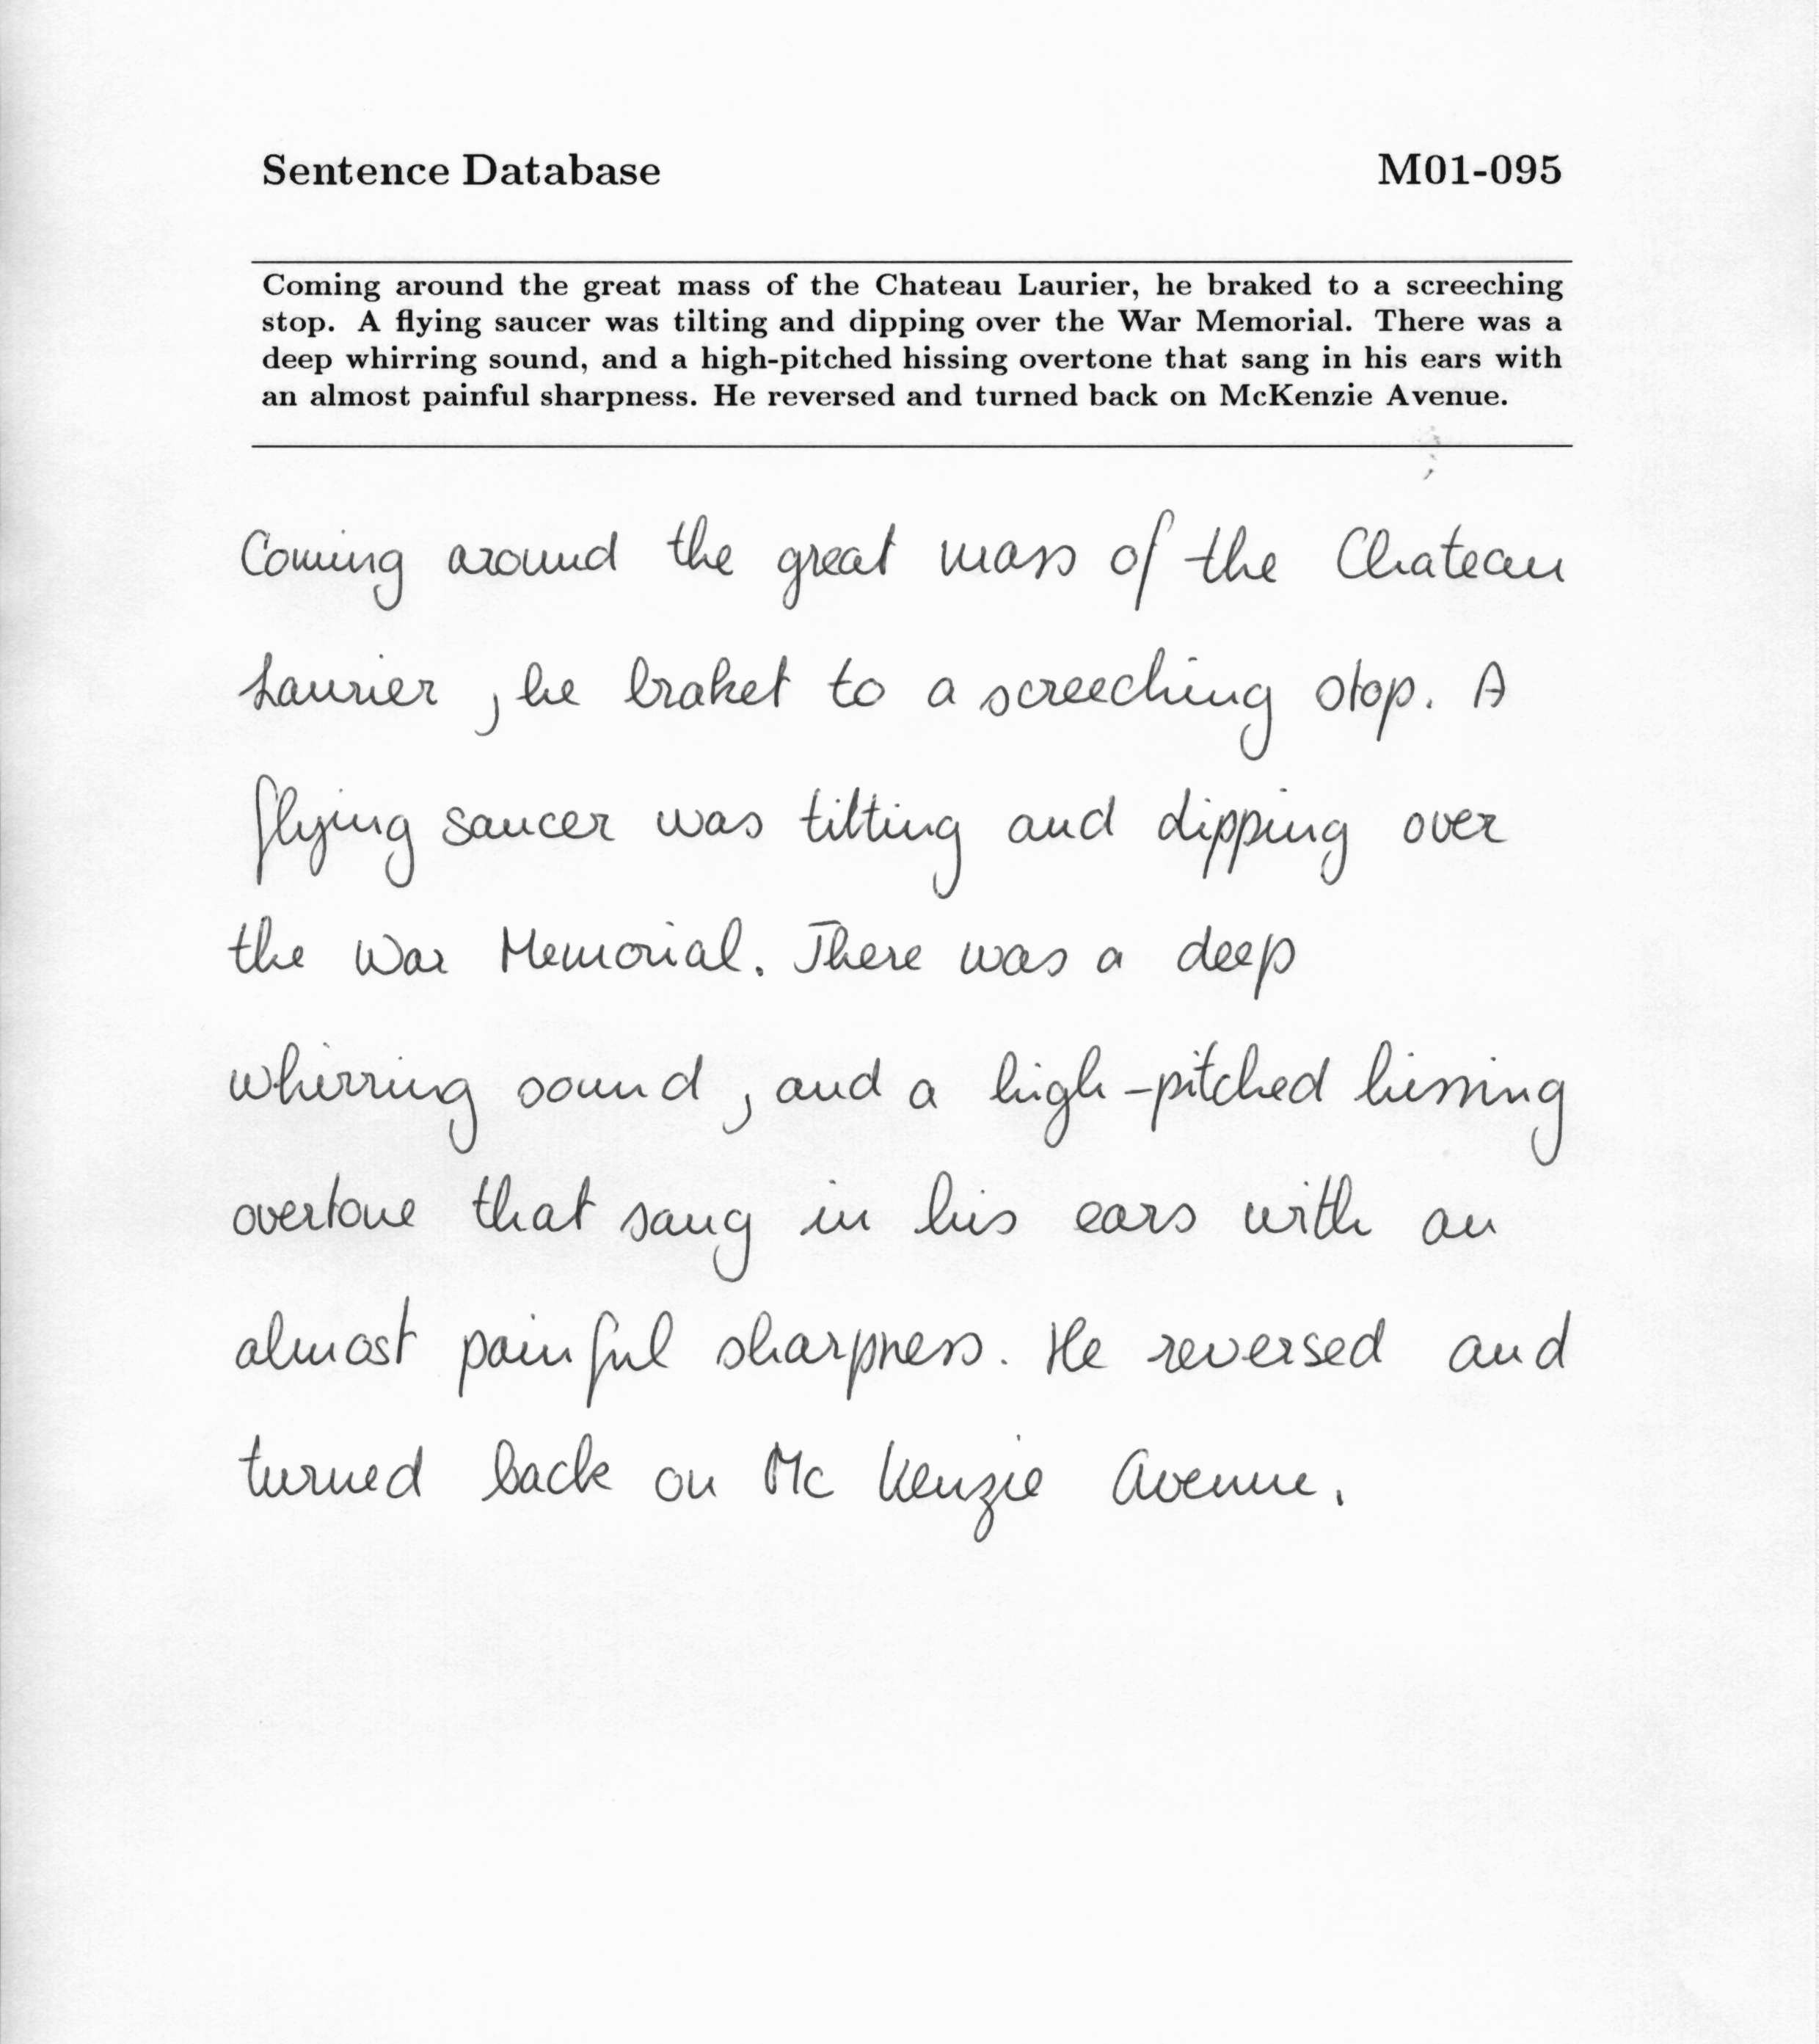 Sentence Database M01-095
Coming around the great mass of the Chateau Laurier, he braked to a screeching
stop. A flying saucer was tilting and dipping over the War Memorial. There was a
deep whirring sound, and a high-pitched hissing overtone that sang in his ears with
an almost painful sharpness. He reversed and turned back on McKenzie Avenue.
Coming around the great mass of the Chateau
Laurier , he braket to a screeching stop. A
flying saucer was tilting and dipping over
the War Memorial. There was a deep
whirring sound , and a high-pitched hissing
overtone that sang in his ears with an
almost painful sharpness. He reversed and
turned back on Mc Kenzie Avenue.